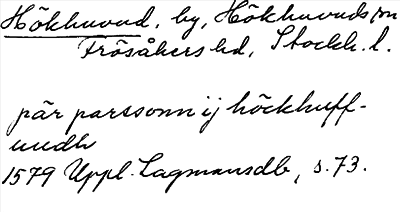 Hökhuvud, by, Hökhuvuds sn
Frösåkers hd, Stockh. l.
pär parssonn ij höckhuff-
uudh
1579 Uppl. Lagmansdb, s. 73.